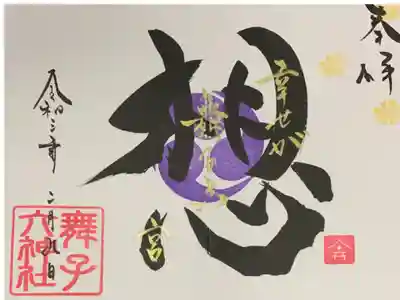 奉拝
想
幸せが
宮
令和三年
二月九日
舞子
六神社